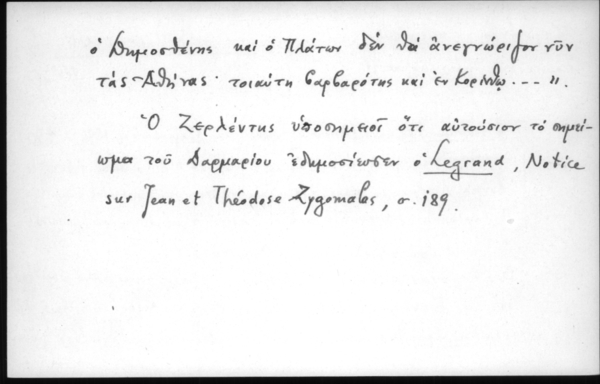 ὁ Δημοσθένης καὶ ὁ Πλάτων δέν θά ἀνεγνώριζον νῦν
τάς Ἀθήνας· τοιαύτη βαρβαρότης καὶ ἐν Κορίνθῳ...".
Ὁ Ζερλέντης ὑποσημειοῖ ὅτι αὐτούσιον τό σημεί-
ωμα τοῦ Δαρμαρίου ἐδημοσίευσεν ὁ Legrand, Notice
sur Jean et Théodose Zygomalas, σ. 189.